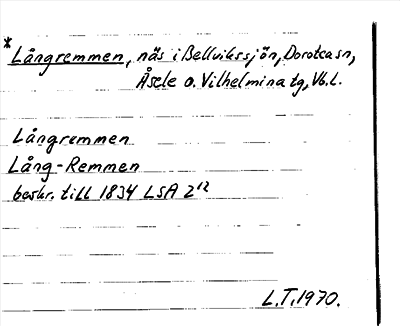 *Långremmen, näs i Bellvikssjön, Dorotea sn,
Åsele o. Vilhelmina tg, Vb. L.
Långremmen
Lång-Remmen
beskr. till 1834 LSA Z¹²
L.T. 1970.